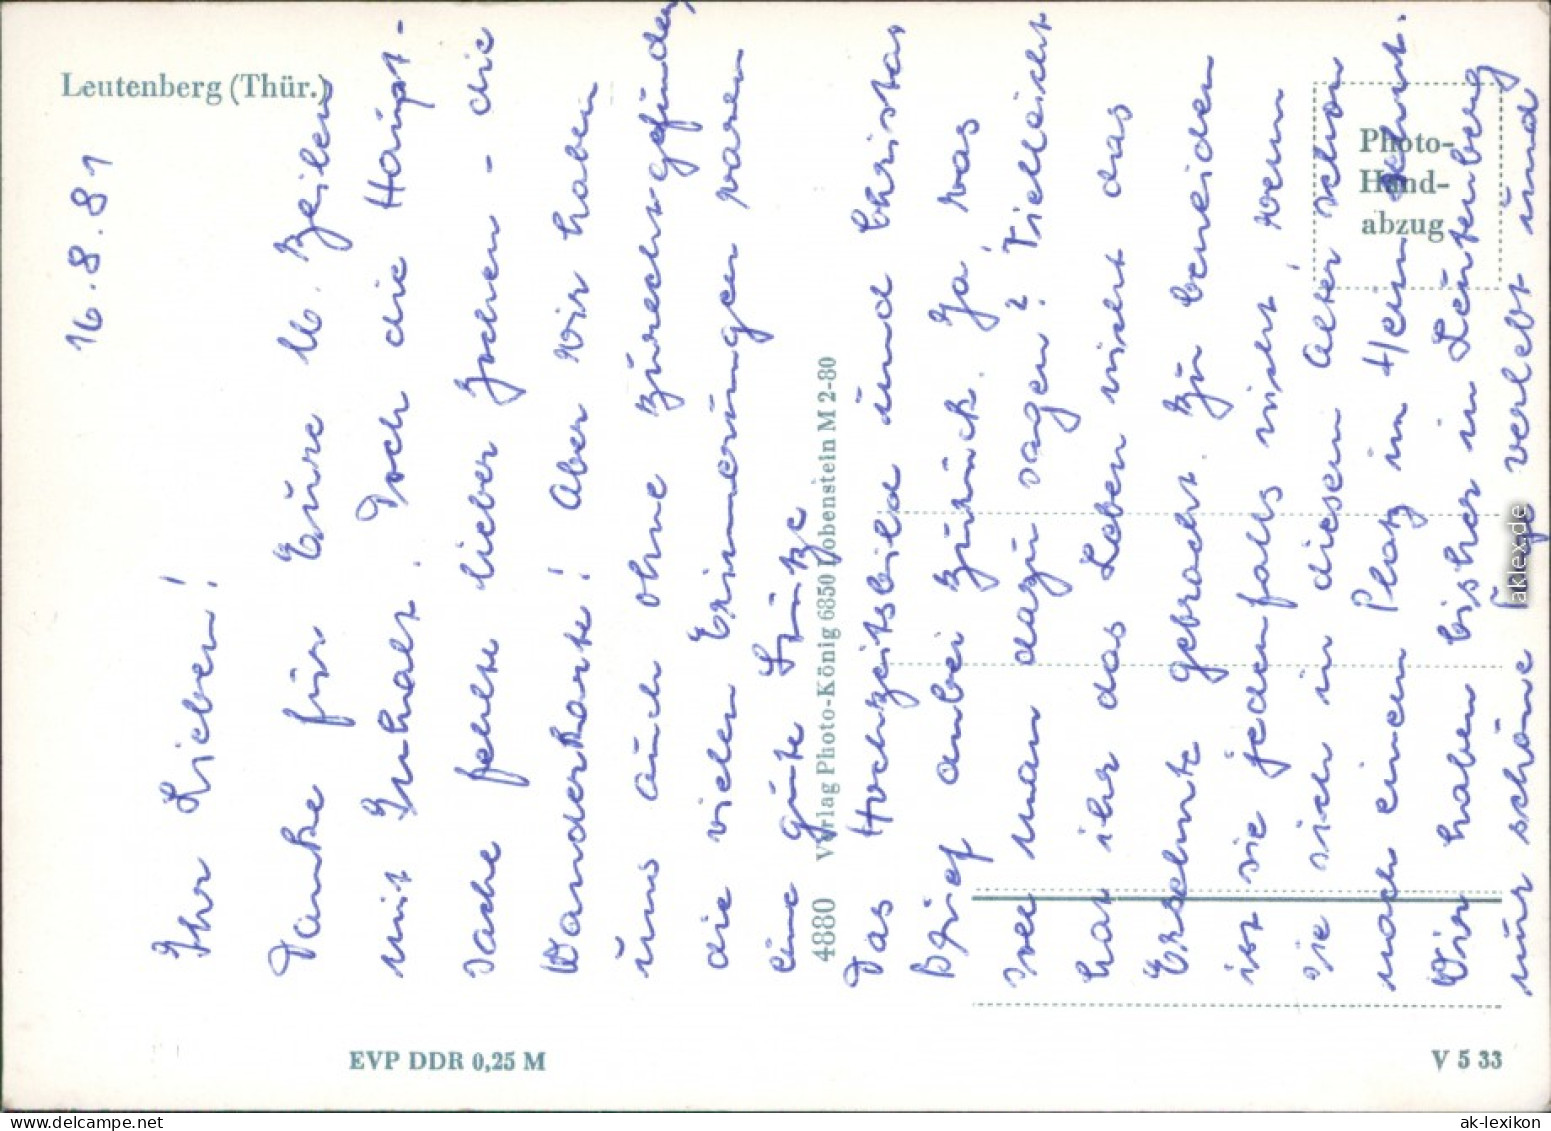 Leutenberg (Thür.)
16.8.81
Ihr Lieben!
Danke für Eure lb. Zeilen
mit Inhalt. Doch die Haupt-
sache fehlte lieber Jochen - die
Wanderkarte! Aber wir haben
uns auch ohne zurechtgefunden,
die vielen Erinnerungen waren
eine gute Stütze
Das Hochzeitsbild und Christas
Brief anbei zurück. Ja, was
soll man dazu sagen? Vielleicht
hat ihr das Leben nicht das
Ersehnte gebracht. Zu beneiden
ist sie jedenfalls nicht, wenn
sie sich in diesem Alter schon
nach einem Platz im Heim sehnt.
Wir haben bisher in Leutenberg
nur schöne Tage verlebt und
Photo-
Hand-
abzug
4880 Verlag Photo-König 6850 Lobenstein M 2-80
EVP DDR 0,25 M
V 5 33
aklex.de
www.delcampe.net
ak-lexikon